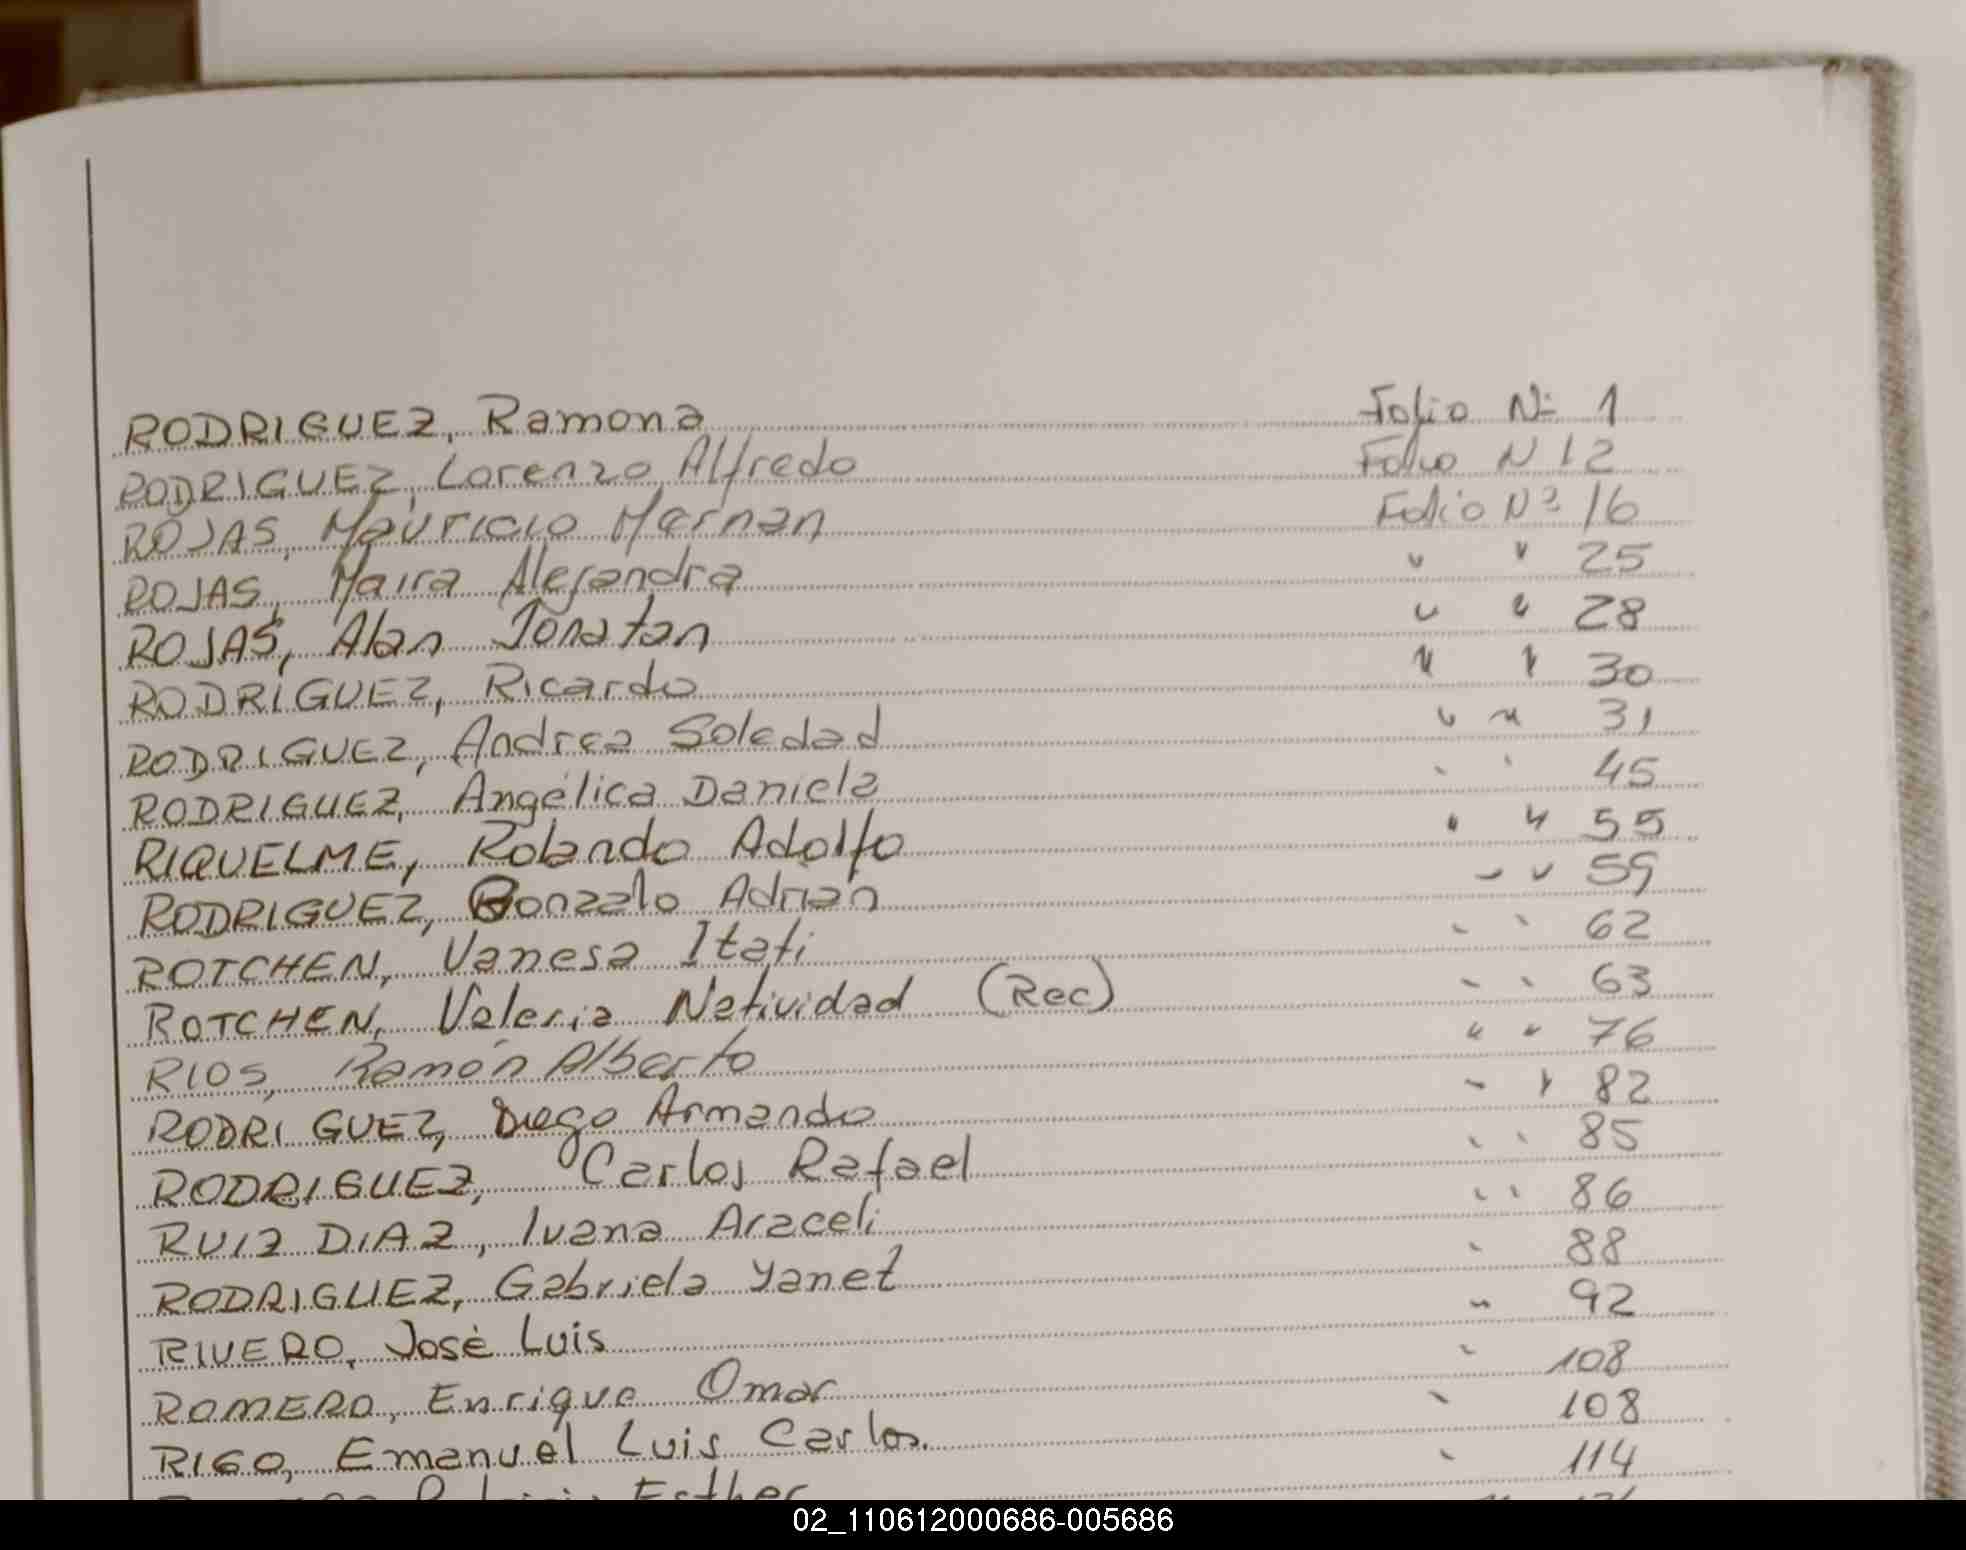 RODRIGUEZ, Ramona Folio Nº 1
RODRIGUEZ, Lorenzo Alfredo Folio N 12
ROJAS, Mauricio Hernan Folio Nº 16
ROJAS, Maira Alejandra " " 25
ROJAS, Alan Jonatan " " 28
RODRIGUEZ, Ricardo " " 30
RODRIGUEZ, Andrea Soledad " " 31
RODRIGUEZ, Angélica Daniela " " 45
RIQUELME, Rolando Adolfo " " 55
RODRIGUEZ, Gonzalo Adrian " " 59
ROTCHEN, Vanesa Itati " " 62
ROTCHEN, Valeria Natividad (Rec) " " 63
RIOS, Ramón Alberto " " 76
RODRIGUEZ, Diego Armando " " 82
RODRIGUEZ, Carlos Rafael " " 85
RUIZ DIAZ, Ivana Araceli " " 86
RODRIGUEZ, Gabriela Yanet " 88
RIVERO, José Luis " 92
ROMERO, Enrique Omar " 108
RIGO, Emanuel Luis Carlos. " 108
Esther " 114
02_110612000686-005686